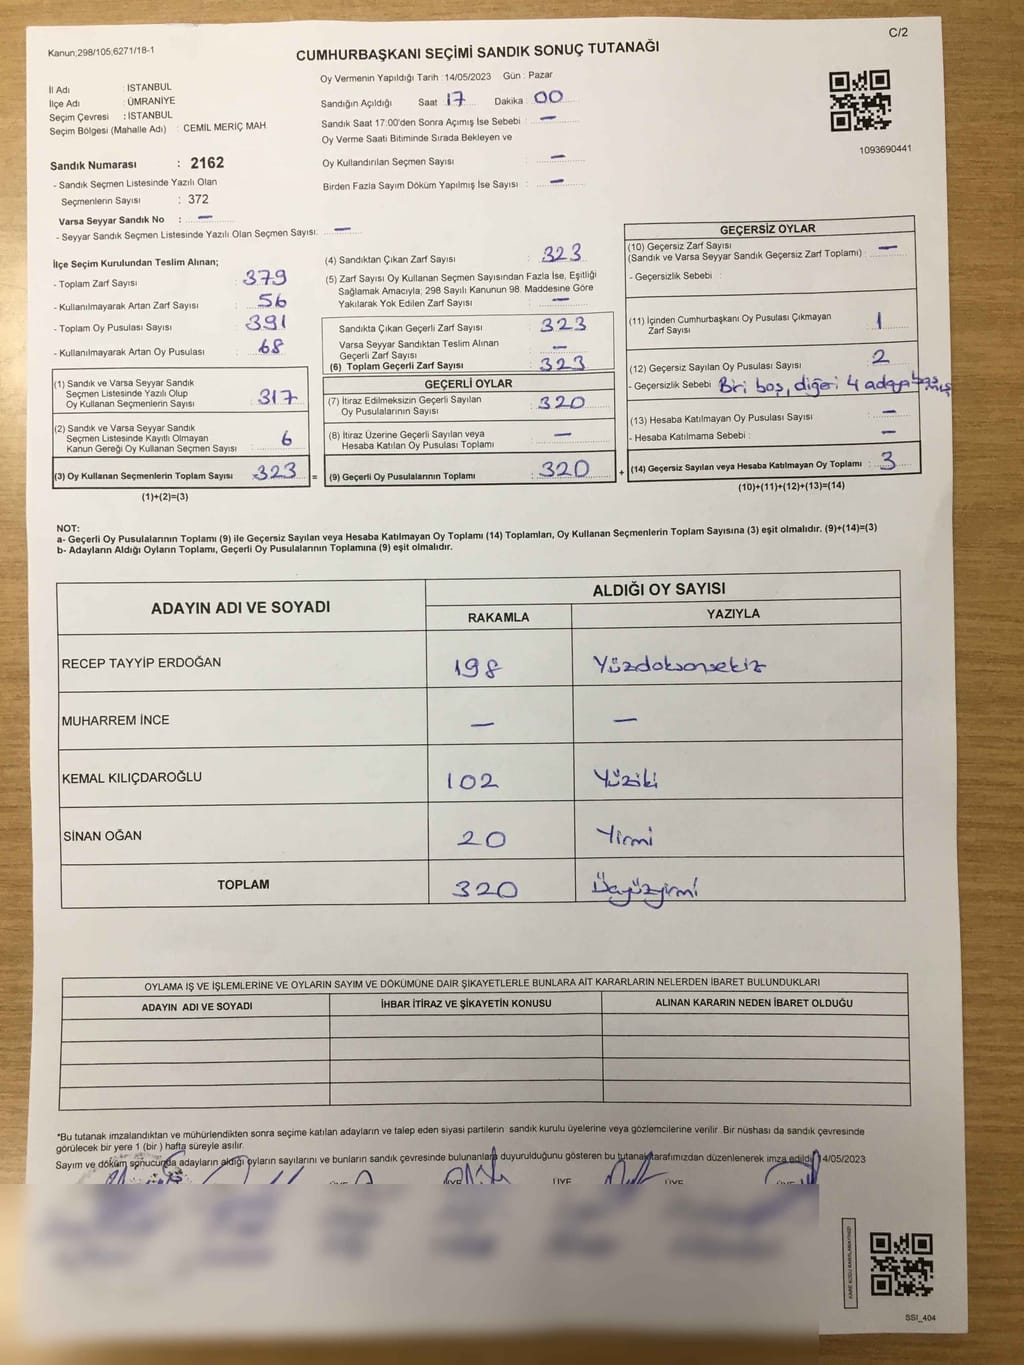 C/2
Kanun;298/105;6271/18-1
CUMHURBAŞKANI SEÇİMİ SANDIK SONUÇ TUTANAĞI
İl Adı : İSTANBUL
İlçe Adı : ÜMRANİYE
Seçim Çevresi : İSTANBUL
Seçim Bölgesi (Mahalle Adı) : CEMİL MERİÇ MAH.
Oy Vermenin Yapıldığı Tarih : 14/05/2023 Gün : Pazar
Sandığın Açıldığı Saat 17 Dakika : 00
Sandık Saat 17:00'den Sonra Açımış İse Sebebi : —
Oy Verme Saati Bitiminde Sırada Bekleyen ve
Oy Kullandırılan Seçmen Sayısı : —
Birden Fazla Sayım Döküm Yapılmış İse Sayısı : —
1093690441
Sandık Numarası : 2162
- Sandık Seçmen Listesinde Yazılı Olan
Seçmenlerin Sayısı : 372
Varsa Seyyar Sandık No : —
- Seyyar Sandık Seçmen Listesinde Yazılı Olan Seçmen Sayısı: —
İlçe Seçim Kurulundan Teslim Alınan;
- Toplam Zarf Sayısı : 379
- Kullanılmayarak Artan Zarf Sayısı : 56
- Toplam Oy Pusulası Sayısı : 391
- Kullanılmayarak Artan Oy Pusulası : 68
(1) Sandık ve Varsa Seyyar Sandık
Seçmen Listesinde Yazılı Olup
Oy Kullanan Seçmenlerin Sayısı : 317
(2) Sandık ve Varsa Seyyar Sandık
Seçmen Listesinde Kayıtlı Olmayan
Kanun Gereği Oy Kullanan Seçmen Sayısı : 6
(3) Oy Kullanan Seçmenlerin Toplam Sayısı : 323 =
(1)+(2)=(3)
(4) Sandıktan Çıkan Zarf Sayısı : 323
(5) Zarf Sayısı Oy Kullanan Seçmen Sayısından Fazla İse, Eşitliği
Sağlamak Amacıyla, 298 Sayılı Kanunun 98. Maddesine Göre
Yakılarak Yok Edilen Zarf Sayısı : —
Sandıkta Çıkan Geçerli Zarf Sayısı : 323
Varsa Seyyar Sandıktan Teslim Alınan
Geçerli Zarf Sayısı : —
(6) Toplam Geçerli Zarf Sayısı : 323
GEÇERLİ OYLAR
(7) İtiraz Edilmeksizin Geçerli Sayılan
Oy Pusulalarının Sayısı : 320
(8) İtiraz Üzerine Geçerli Sayılan veya
Hesaba Katılan Oy Pusulası Toplamı : —
(9) Geçerli Oy Pusulalarının Toplamı : 320 +
GEÇERSİZ OYLAR
(10) Geçersiz Zarf Sayısı
(Sandık ve Varsa Seyyar Sandık Geçersiz Zarf Toplamı) : —
- Geçersizlik Sebebi :
(11) İçinden Cumhurbaşkanı Oy Pusulası Çıkmayan
Zarf Sayısı : 1
(12) Geçersiz Sayılan Oy Pusulası Sayısı : 2
- Geçersizlik Sebebi : Biri boş, diğeri 4 adaya basmış
(13) Hesaba Katılmayan Oy Pusulası Sayısı : —
- Hesaba Katılmama Sebebi : —
(14) Geçersiz Sayılan veya Hesaba Katılmayan Oy Toplamı : 3
(10)+(11)+(12)+(13)=(14)
NOT:
a- Geçerli Oy Pusulalarının Toplamı (9) ile Geçersiz Sayılan veya Hesaba Katılmayan Oy Toplamı (14) Toplamları, Oy Kullanan Seçmenlerin Toplam Sayısına (3) eşit olmalıdır. (9)+(14)=(3)
b- Adayların Aldığı Oyların Toplamı, Geçerli Oy Pusulalarının Toplamına (9) eşit olmalıdır.
ADAYIN ADI VE SOYADI ALDIĞI OY SAYISI
RAKAMLA YAZIYLA
RECEP TAYYİP ERDOĞAN 198 Yüzdoksansekiz
MUHARREM İNCE — —
KEMAL KILIÇDAROĞLU 102 Yüziki
SİNAN OĞAN 20 Yirmi
TOPLAM 320 Üçyüzyirmi
OYLAMA İŞ VE İŞLEMLERİNE VE OYLARIN SAYIM VE DÖKÜMÜNE DAİR ŞİKAYETLERLE BUNLARA AİT KARARLARIN NELERDEN İBARET BULUNDUKLARI
ADAYIN ADI VE SOYADI İHBAR İTİRAZ VE ŞİKAYETİN KONUSU ALINAN KARARIN NEDEN İBARET OLDUĞU
*Bu tutanak imzalandıktan ve mühürlendikten sonra seçime katılan adayların ve talep eden siyasi partilerin sandık kurulu üyelerine veya gözlemcilerine verilir .Bir nüshası da sandık çevresinde
görülecek bir yere 1 (bir ) hafta süreyle asılır.
Sayım ve döküm sonucunda adayların aldığı oyların sayılarını ve bunların sandık çevresinde bulunanlara duyurulduğunu gösteren bu tutanak tarafımızdan düzenlenerek imza edildi. 14/05/2023
ÜYE ÜYE ÜYE
SSI_404